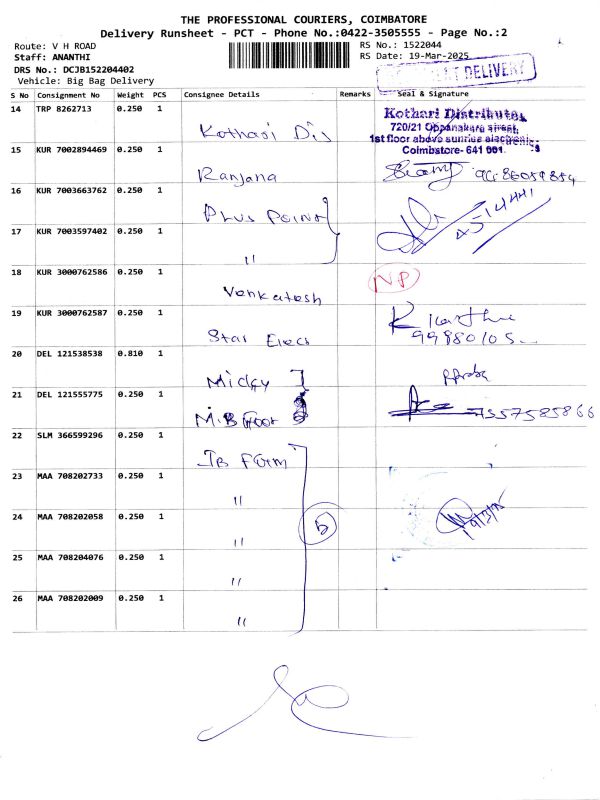 THE PROFESSIONAL COURIERS, COIMBATORE
Delivery Runsheet - PCT - Phone No.:0422-3505555 - Page No.:2
Route: V H ROAD RS No.: 1522044
Staff: ANANTHI RS Date: 19-Mar-2025
DRS No.: DCJB152204402 DELIVERY
Vehicle: Big Bag Delivery
S No Consignment No Weight PCS Consignee Details Remarks Seal & Signature
14 TRP 8262713 0.250 1 Kothari Dis
Kothari Distributor
720/21 Oppanakara street,
1st floor above sunrise electronics
Coimbatore- 641 001.
15 KUR 7002894469 0.250 1 Ranjana
16 KUR 7003663762 0.250 1 Plus Point
17 KUR 7003597402 0.250 1 "
18 KUR 3000762586 0.250 1 Venkatesh NP
19 KUR 3000762587 0.250 1 Star Elecs
99880105
20 DEL 121538538 0.810 1 Micky
21 DEL 121555775 0.250 1 M.B Floor 7357585866
22 SLM 366599296 0.250 1 JB Farm
23 MAA 708202733 0.250 1 "
24 MAA 708202058 0.250 1 " 5
25 MAA 708204076 0.250 1 "
26 MAA 708202009 0.250 1 "